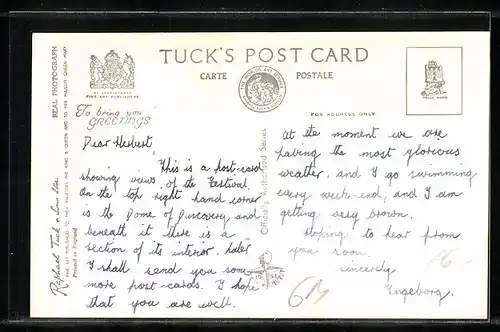 TUCK'S POST CARD
CARTE POSTALE
BY APPOINTMENT
FINE ART PUBLISHERS
To bring you
GREETINGS
FOR ADDRESS ONLY
TRADE MARK
REAL PHOTOGRAPH
Raphael Tuck & Sons Ltd.
FINE ART PUBLISHERS TO THEIR MAJESTIES THE KING & QUEEN AND TO HER MAJESTY QUEEN MARY
Printed in England
Officially Authorised Series
Dear Herbert
This is a post-card
showing views of the Festival.
On the top right hand corner
is the Dome of Discovery and
beneath it there is a
section of its interior. Later
I shall send you some
more post-cards. I hope
that you are well.
At the moment we are
having the most glorious
weather, and I go swimming
every week-end, and I am
getting very brown.
Hoping to hear from
you soon.
sincerely
Ingeborg.